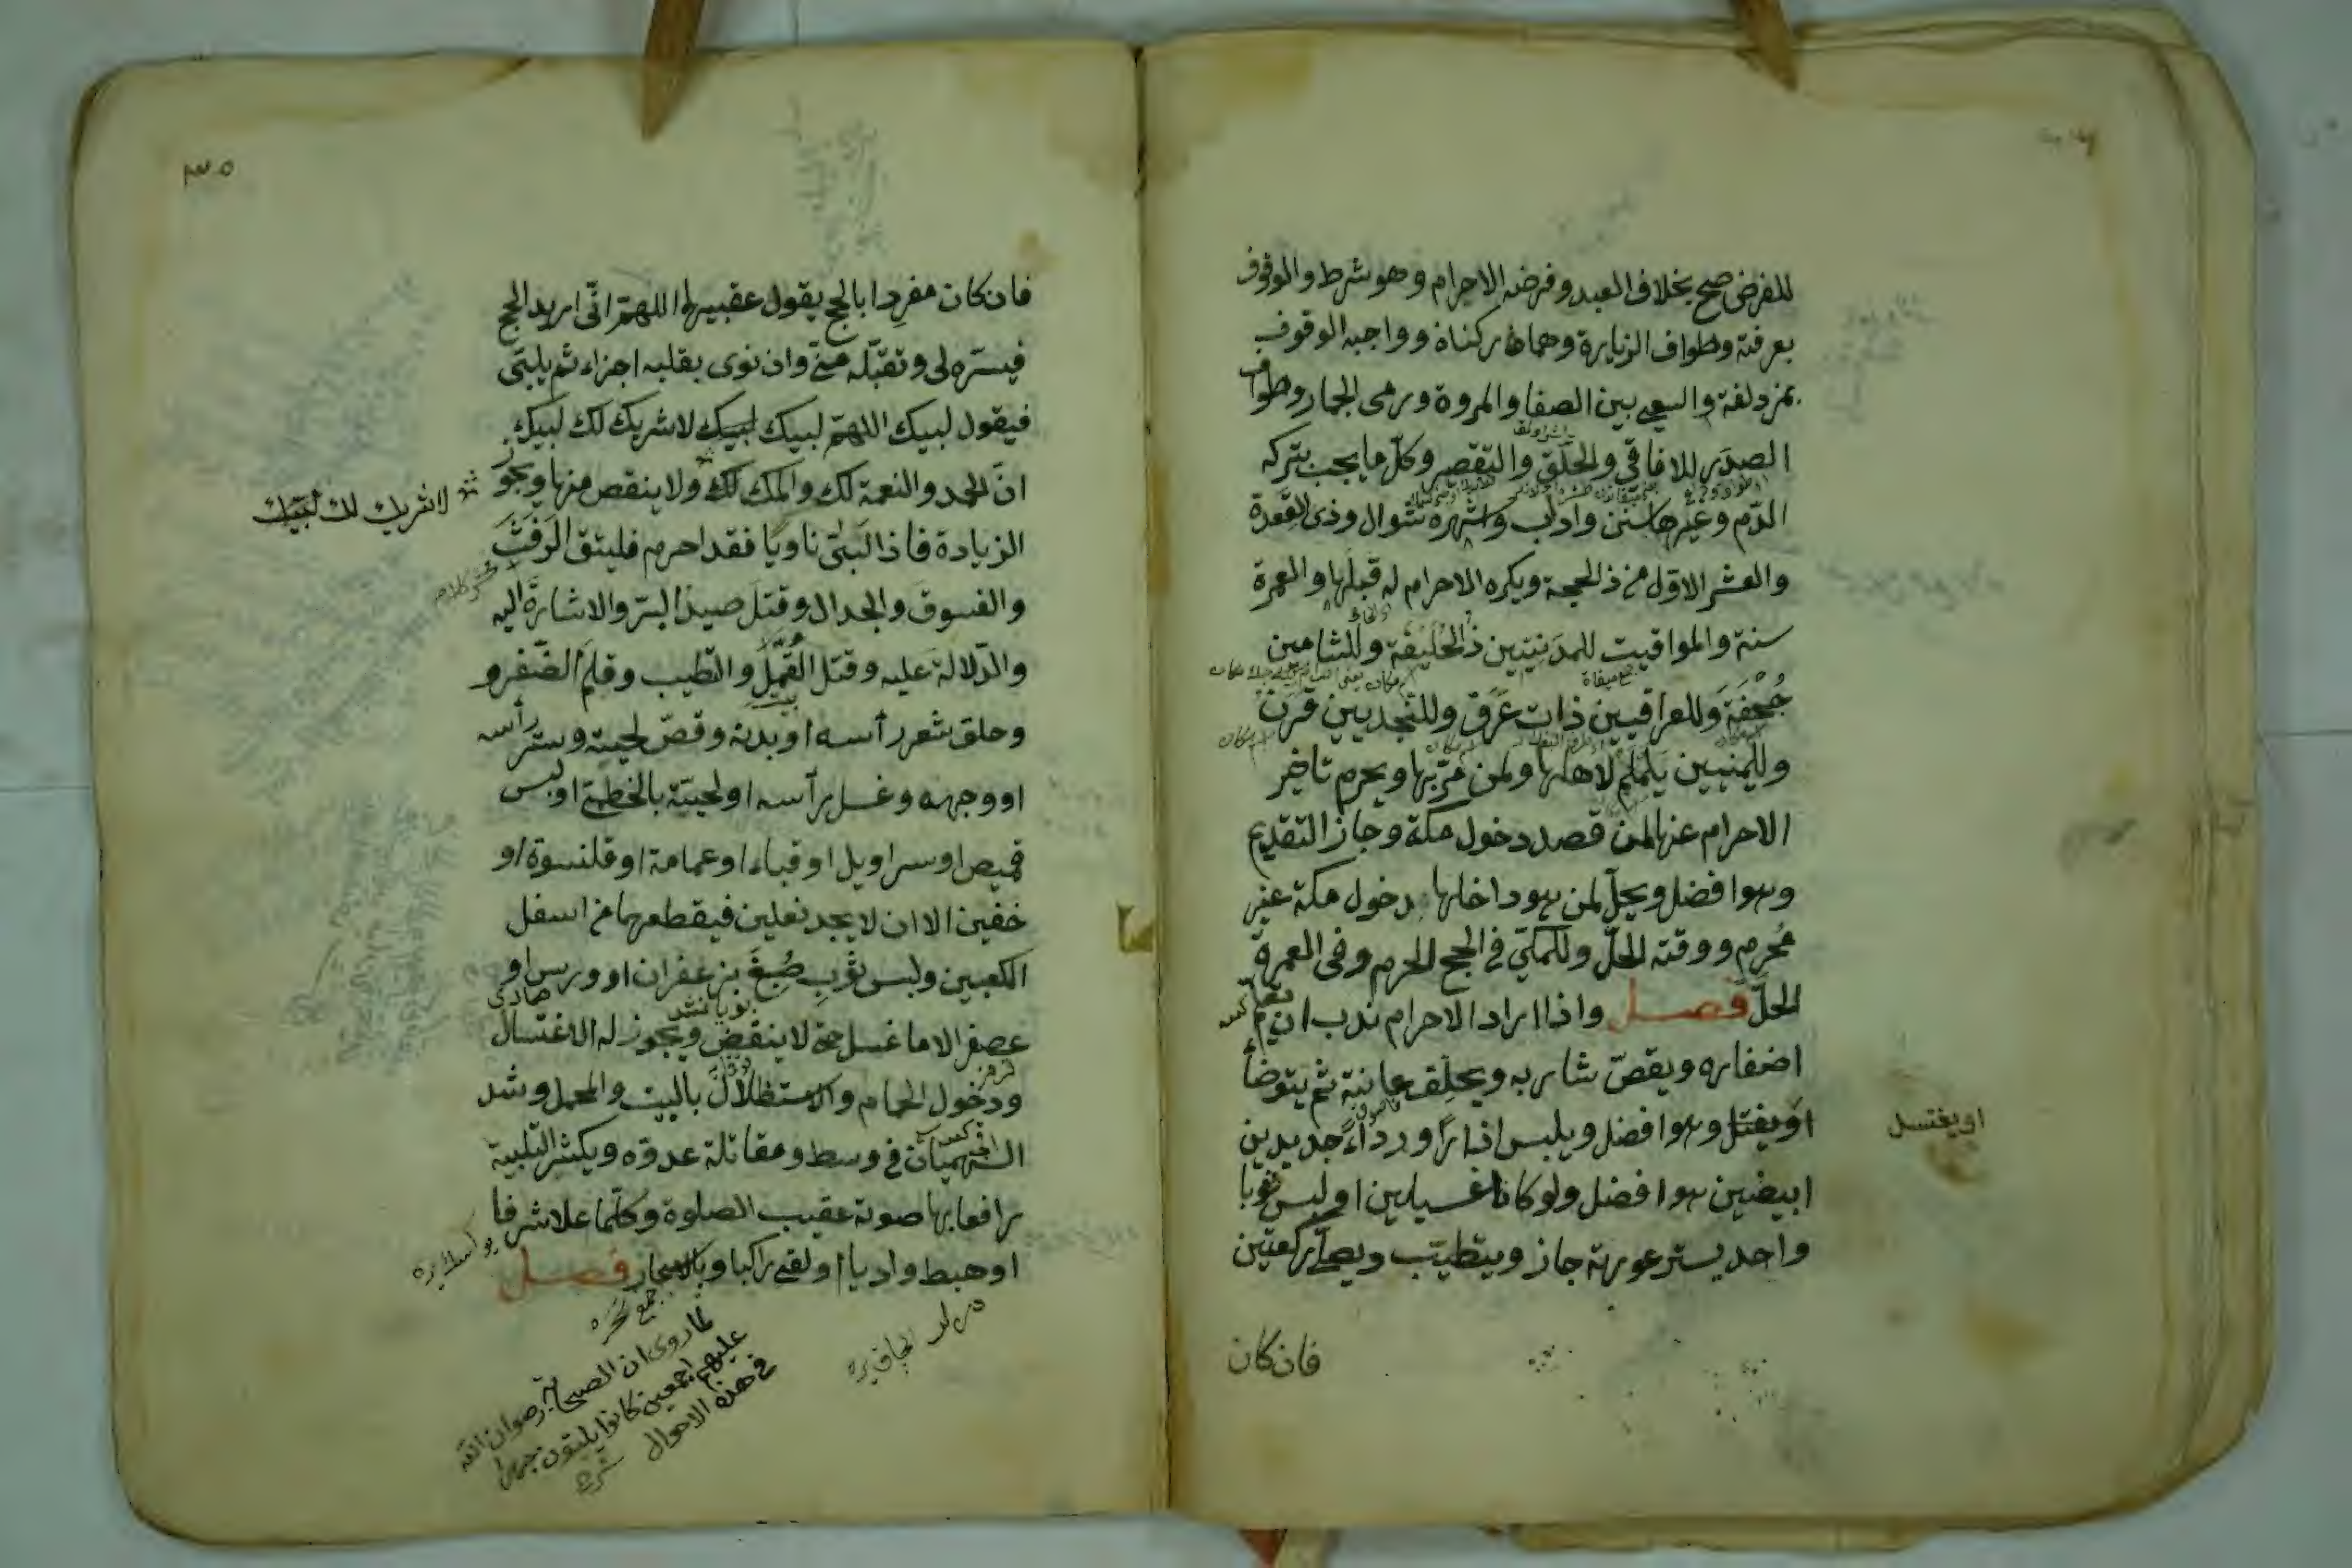 للفرض صح بخلاف العبد وفرضه الاحرام وهو شرط والوقوف
بعرفة وطواف الزيارة وهما ركناه وواجبه الوقوف
بمزدلفة والسعى بين الصفا والمروة ورمى الجمار وطواف
الصدر للافاقي والحلق والتقصير وكل ما يجب بتركه
الدم وغيرها سنن واداب واشهره شوال وذى القعدة
والعشر الاول من ذالحجة ويكره الاحرام له قبلها والعمرة
سنة والمواقيت للمدنيين ذالحليفة وللشامين
جحفة وللعراقيين ذات عرق وللنجديين قرن
ولليمنيين يلملم لاهلها ولمن مر بها ويحرم تاخير
الاحرام عنها لمن قصد دخول مكة وجاز التقديم
وهوا فضل ويحل لمن هو داخلها دخول مكة غير
محرم ووقته الحل وللمكي فى الحج الحرم وفى العمرة
الحل فصل واذا اراد الاحرام ندب ان يقلم
اضفاره ويقص شاربه ويحلق عانته ثم يتوضأ
او يغتل وهوا فضل ويلبس ازارا ورداء جديدين
او يغتسل
ابيضين هوا فضل ولو كانا غسيلين او لبس ثوبا
واحد يستر عورته جاز ويتطيب ويصلى ركعتين
فان كان
٣٠٥
فان كان مفردا بالحج يقول عقبيها اللهم انى اريد الحج
فيسره لى وتقبله منى وان نوى بقلبه اجزاء ثم يلبى
فيقول لبيك اللهم لبيك لبيك لا شريك لك لبيك
ان الحمد والنعمة لك والملك لك ولا ينقص منها ويجوز
لا شريك لك لبيك
الزيادة فاذا لبى ناويا فقد احرم فليتق الرفث
والفسوق والجدال وقتل صيد البر والاشارة اليه
والدلالة عليه وقتل القمل والتطيب وقلم الضفر و
وحلق شعر رأسه او بدنه وقص لحيته وستر رأسه
او وجهه وغسل رأسه او لحيته بالخطمى او لبس
قميص او سراويل او قباء او عمامة او قلنسوة او
خفين الا ان لا يجد نعلين فيقطعهما من اسفل
الكعبين ولبس ثوب صبغ بزعفران او ورس او
عصفر الا ما غسل حتى لا ينقض ويجوز له الاغتسال
ودخول الحمام والاستظلال بالبيت والمحمل وشد
الهميان فى وسط ومقاتلة عدوه ويكثر التلبية
رافعا بها صوته عقيب الصلوة وكلما علا شرفا
او هبط واديا او لقى راكبا وبالاسحار فصل
جمع سحره
لما روى ان الصحابة رضوان الله
عليهم اجمعين كانوا يلبون جهرا
فى هذه الاحوال شرح